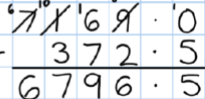 6 10 1
7 1 6 9 · 0
- 3 7 2 · 5
6 7 9 6 · 5